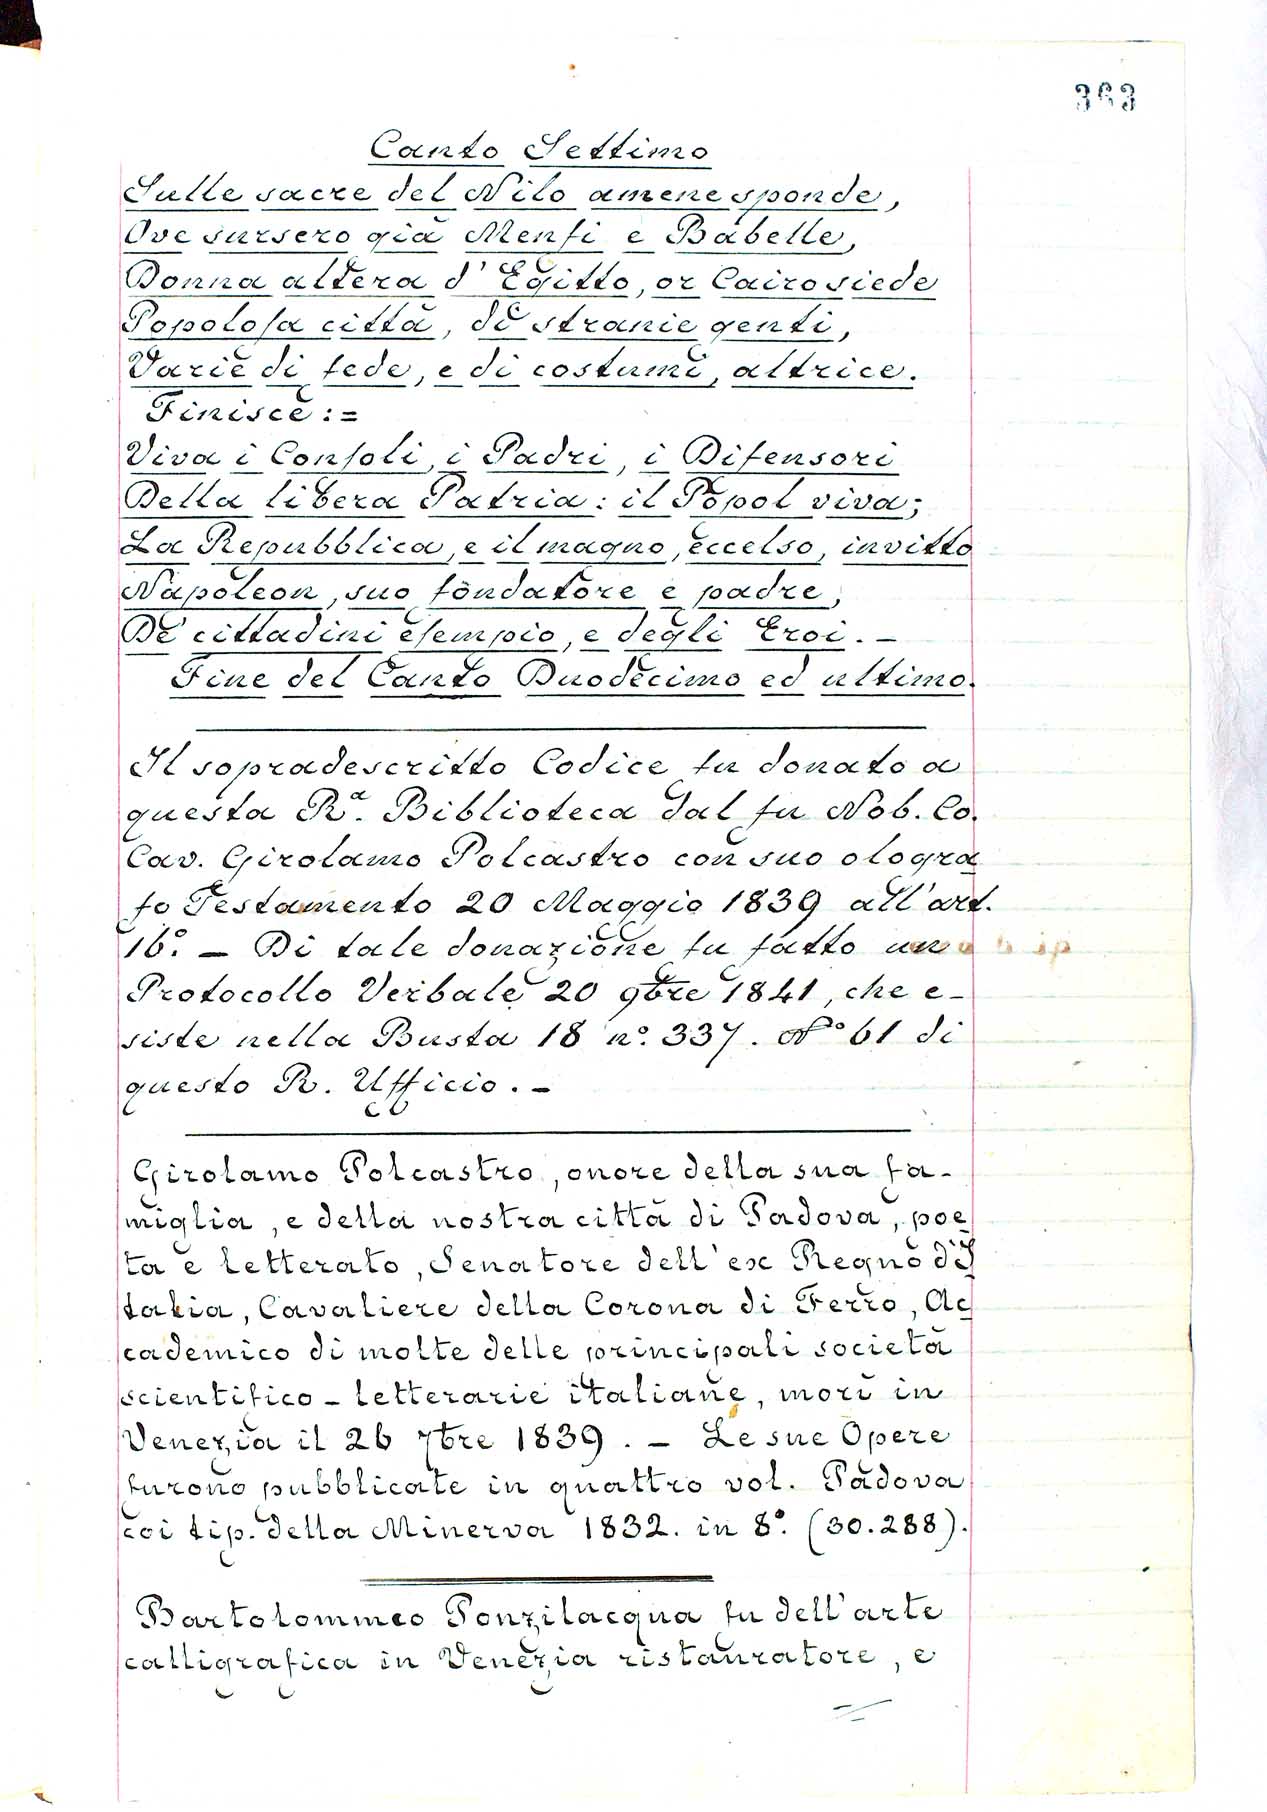 363
Canto Settimo
Sulle sacre del Nilo amene sponde,
Ove sursero già Menfi e Babelle,
Donna altera d'Egitto, or Cairo siede
Popoloſa città, di stranie genti,
Varie di fede, e di costumi, altrice.
Finisce:=
Viva i Conſoli, i Padri, i Difensori
Della libera Patria: il Popol viva;
La Repubblica, e il magno, eccelso, invitto
Napoleon, suo fondatore e padre,
De' cittadini eſempio, e degli Eroi. –
Fine del Canto Duodecimo ed ultimo.
Il sopradescritto Codice fu donato a
questa R.ª Biblioteca dal fu Nob. Co.
Cav. Girolamo Polcastro con suo ologra
fo Testamento 20 Maggio 1839 all'art.
16.° – Di tale donazione fu fatto un
Protocollo Verbale 20 9bre 1841, che e-
siste nella Busta 18 n.° 337. N° 61 di
questo R. Ufficio. –
Girolamo Polcastro, onore della sua fa-
miglia, e della nostra città di Padova, poe
ta e letterato, Senatore dell'ex Regno d'I
talia, Cavaliere della Corona di Ferro, Ac
cademico di molte delle principali società
scientifico – letterarie italiane, morì in
Venezia il 26 7bre 1839. – Le sue Opere
furono pubblicate in quattro vol. Padova
coi tip. della Minerva 1832. in 8.° (30.288).
Bartolommeo Ponzilacqua fu dell'arte
calligrafica in Venezia ristauratore, e